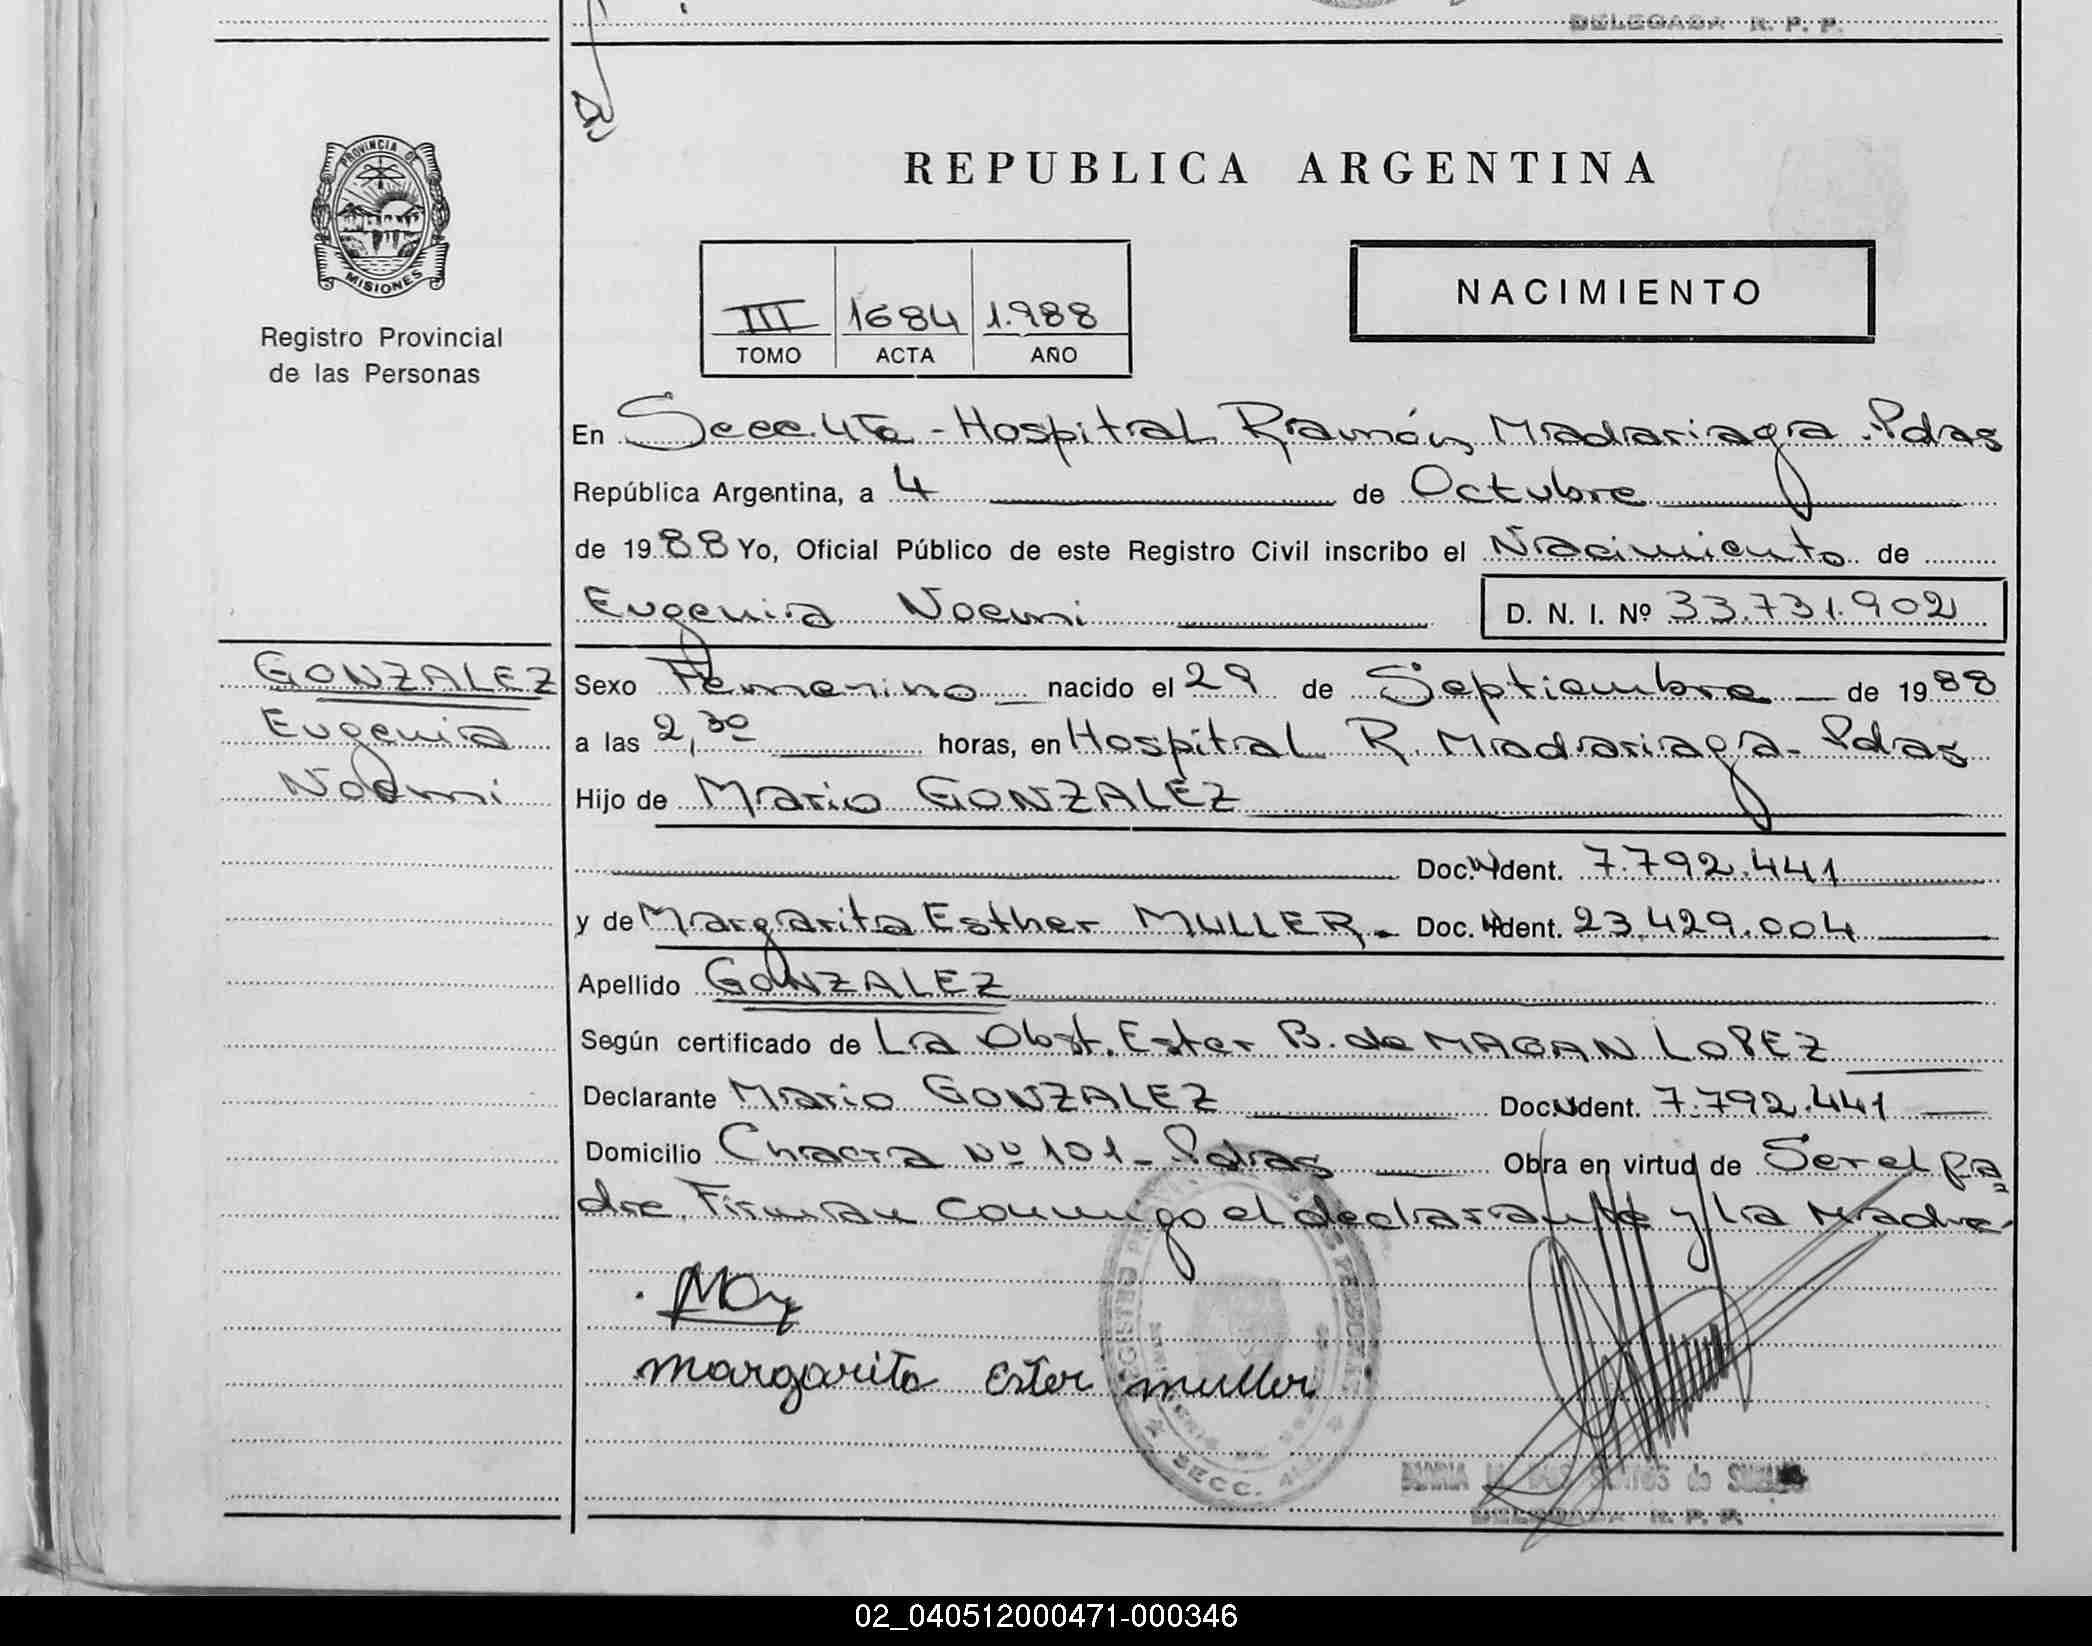 DELEGADA R. P. P.
PROVINCIA DE
MISIONES
Registro Provincial
de las Personas
REPUBLICA ARGENTINA
III 1684 1.988
TOMO ACTA AÑO
NACIMIENTO
En Secc. 4ta - Hospital Ramón Madariaga. Pdas
República Argentina, a 4 de Octubre
de 1988 Yo, Oficial Público de este Registro Civil inscribo el Nacimiento de
Eugenia Noemi D. N. I. Nº 33.731.902
GONZALEZ
Eugenia
Noemi
Sexo Femenino nacido el 29 de Septiembre de 1988
a las 2,30 horas, en Hospital R. Madariaga - Pdas
Hijo de Mario GONZALEZ
Doc. Ident. 7.792.441
y de Margarita Esther MULLER. Doc. Ident. 23.429.004
Apellido GONZALEZ
Según certificado de La Obst. Ester B. de MAGAN LOPEZ
Declarante Mario GONZALEZ Doc. Ident. 7.792.441
Domicilio Chacra Nº 101 - Pdas Obra en virtud de Ser el pa
dre. Firman conmigo el declarante y la Madre
margarita Ester muller
SECC. 4
DELEGADA R. P. P.
02_040512000471-000346